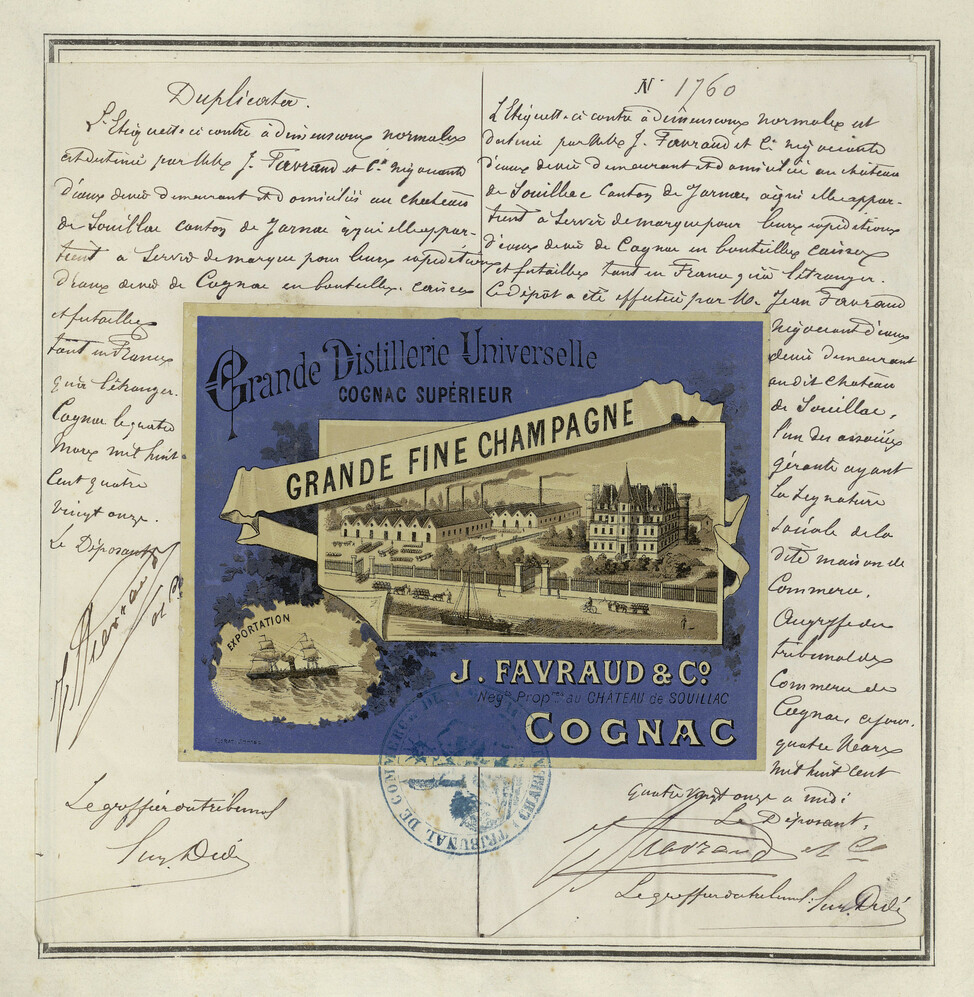 Duplicata.
L'Etiquette ci contre à dimensions normales
est destinée par MM. J. Favraud et Cie négociants
d'eaux de vie demeurant et domiciliés au château
de Souillac canton de Jarnac à qui elle appar-
tient à servir de marque pour leurs expéditions
d'eaux de vie de Cognac en bouteilles, caisses
et futailles
tant en France
qu'à l'étranger.
Cognac le quatre
Mars mil huit
Cent quatre
vingt onze.
Le Déposant
J. Favraud et Cie
Le greffier du tribunal
N° 1760
L'Etiquette ci contre à dimensions normales est
destinée par MM. J. Favraud et Cie négociants
d'eaux de vie demeurant et domiciliés au château
de Souillac canton de Jarnac à qui elle appar-
tient à servir de marque pour leurs expéditions
d'eaux de vie de Cognac en bouteilles caisses
et futailles tant en France qu'à l'étranger.
Le dépôt a été effectué par M. Jean Favraud
Négociant d'eaux
de vie demeurant
au dit château
de Souillac,
l'un des associés
gérants ayant
la signature
sociale de la
dite maison de
Commerce,
Au greffe du
tribunal de
Commerce de
Cognac, ce jour
quatre Mars
mil huit cent
quatre vingt onze à midi
Le Déposant,
J. Favraud et Cie
Le greffier du tribunal.
Grande Distillerie Universelle
COGNAC SUPÉRIEUR
GRANDE FINE CHAMPAGNE
EXPORTATION
J. FAVRAUD & Co.
Négts Propres au CHÂTEAU de SOUILLAC
COGNAC
TRIBUNAL DE COMMERCE DE